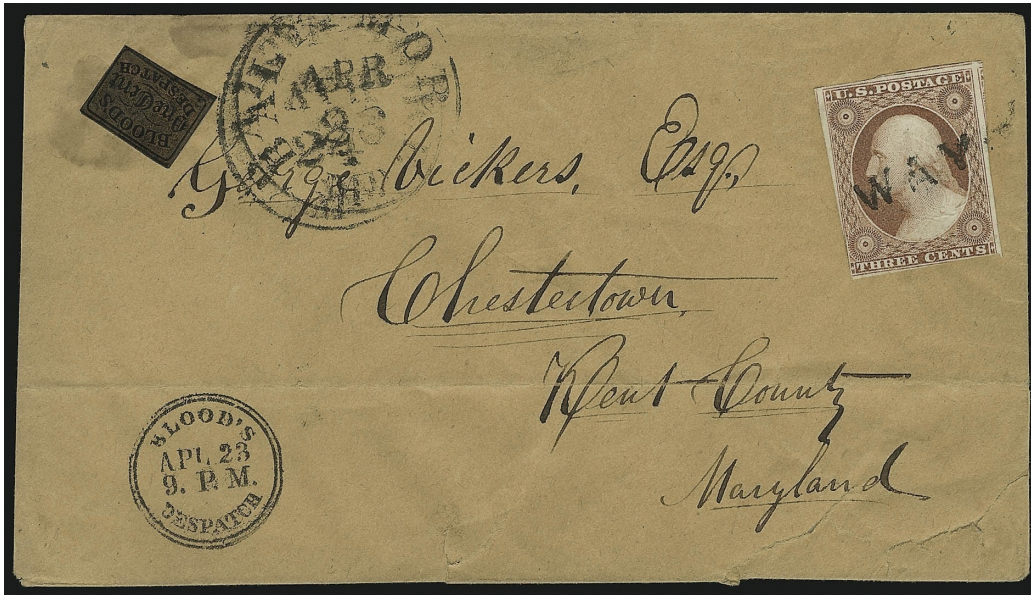 BLOOD'S
One Cent
DESPATCH
BALTIMORE
APR
23
U.S. POSTAGE
WAY
THREE CENTS
George Vickers, Esq.,
Chestertown,
Kent County
Maryland
BLOOD'S
APL 23
9. P. M.
DESPATCH